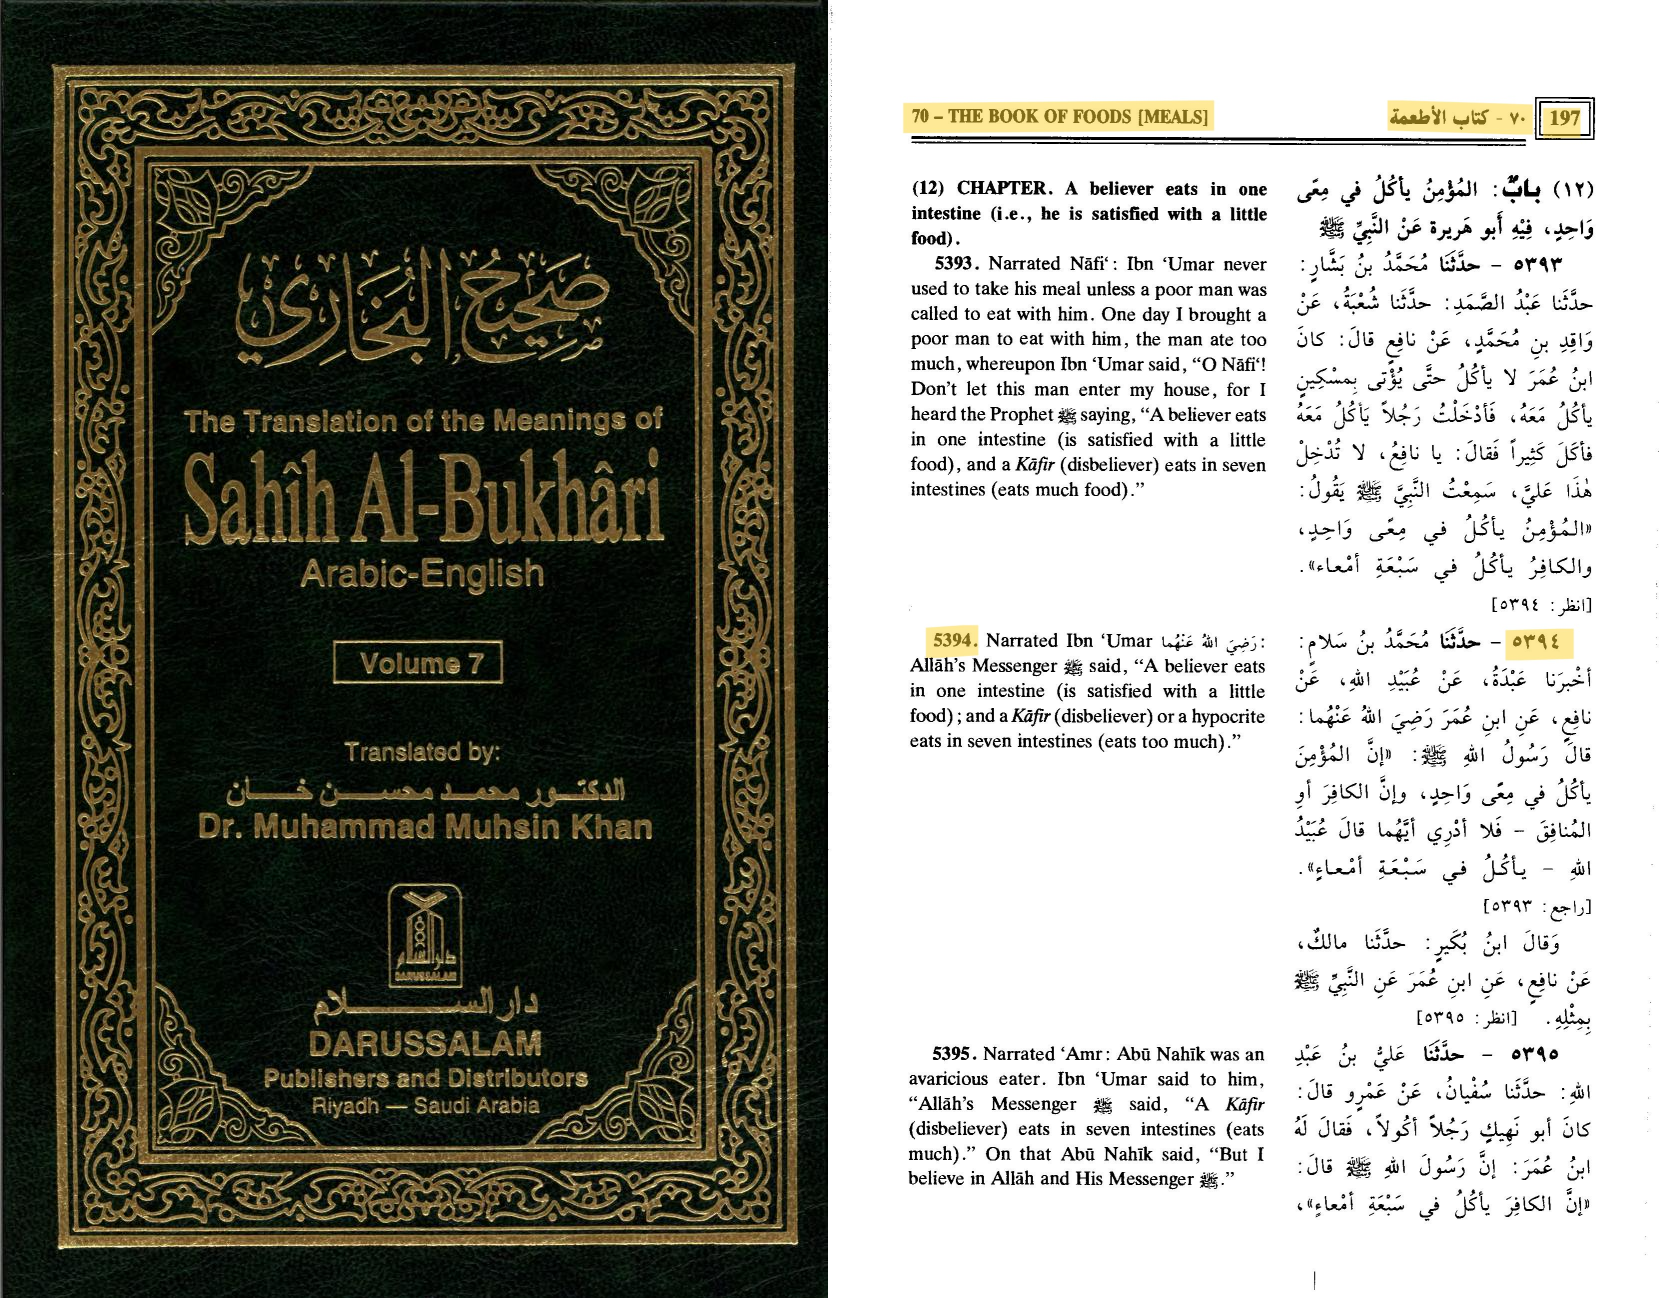 صحيح البخاري
The Translation of the Meanings of
Sahîh Al-Bukhâri
Arabic-English
Volume 7
Translated by:
الدكتور محمد محسن خان
Dr. Muhammad Muhsin Khan
دار السلام
DARUSSALAM
دار السلام
DARUSSALAM
Publishers and Distributors
Riyadh — Saudi Arabia
70 – THE BOOK OF FOODS [MEALS]
٧٠ - كتاب الأطعمة
197
(12) CHAPTER. A believer eats in one
intestine (i.e., he is satisfied with a little
food).
5393. Narrated Nāfi‘: Ibn ‘Umar never
used to take his meal unless a poor man was
called to eat with him. One day I brought a
poor man to eat with him, the man ate too
much, whereupon Ibn ‘Umar said, “O Nāfi‘!
Don’t let this man enter my house, for I
heard the Prophet ﷺ saying, “A believer eats
in one intestine (is satisfied with a little
food), and a Kāfir (disbeliever) eats in seven
intestines (eats much food).”
5394. Narrated Ibn ‘Umar رَضِيَ اللهُ عَنْهُما:
Allāh’s Messenger ﷺ said, “A believer eats
in one intestine (is satisfied with a little
food); and a Kāfir (disbeliever) or a hypocrite
eats in seven intestines (eats too much).”
5395. Narrated ‘Amr: Abū Nahīk was an
avaricious eater. Ibn ‘Umar said to him,
“Allāh’s Messenger ﷺ said, “A Kāfir
(disbeliever) eats in seven intestines (eats
much).” On that Abū Nahīk said, “But I
believe in Allāh and His Messenger ﷺ.”
(١٢) بابٌ: المُؤْمِنُ يأكُلُ في مِعًى
وَاحِدٍ، فِيْهِ أَبو هَريرة عَنْ النَّبِيِّ ﷺ
٥٣٩٣ - حدَّثَنَا مُحَمَّدُ بنُ بَشَّارٍ:
حدَّثنا عَبْدُ الصَّمَدِ: حدَّثنا شُعْبَةُ، عَنْ
وَاقِدِ بنِ مُحَمَّدٍ، عَنْ نافِعٍ قالَ: كانَ
ابنُ عُمَرَ لا يأكُلُ حتَّى يُؤْتى بِمسْكِينٍ
يأكُلُ مَعَهُ، فَأدْخَلْتُ رَجُلاً يَأكُلُ مَعَهُ
فأكَلَ كَثِيراً فَقالَ: يا نافِعُ، لا تُدْخِلْ
هٰذَا عَليَّ، سَمِعْتُ النَّبِيَّ ﷺ يَقُولُ:
«المُؤْمِنُ يأكُلُ في مِعًى وَاحِدٍ،
والكافِرُ يأكُلُ في سَبْعَةِ أمْعاء».
[انظر: ٥٣٩٤]
٥٣٩٤ - حدَّثَنَا مُحَمَّدُ بنُ سَلامٍ:
أخْبرَنا عَبْدَةُ، عَنْ عُبَيْدِ اللهِ، عَنْ
نافِعٍ، عَنِ ابنِ عُمَرَ رَضِيَ اللهُ عَنْهُما:
قالَ رَسُولُ اللهِ ﷺ: «إنَّ المُؤْمِنَ
يأكُلُ في مِعًى وَاحِدٍ، وإنَّ الكافِرَ أوِ
المُنافِقَ - فَلا أدْرِي أيَّهُما قالَ عُبَيْدُ
اللهِ - يأكُلُ في سَبْعَةِ أمْعاءٍ».
[راجع: ٥٣٩٣]
وَقالَ ابنُ بُكَيرٍ: حدَّثَنا مالكٌ،
عَنْ نافِعٍ، عَنِ ابنِ عُمَرَ عَنِ النَّبِيِّ ﷺ
بِمِثْلِهِ. [انظر: ٥٣٩٥]
٥٣٩٥ - حدَّثَنَا عَليُّ بنُ عَبْدِ
اللهِ: حدَّثنا سُفْيانُ، عَنْ عَمْرٍو قالَ:
كانَ أبو نَهِيكٍ رَجُلاً أكُولاً، فَقالَ لَهُ
ابنُ عُمَرَ: إنَّ رَسُولَ اللهِ ﷺ قالَ:
«إنَّ الكافِرَ يأكُلُ في سَبْعَةِ أمْعاءٍ»،